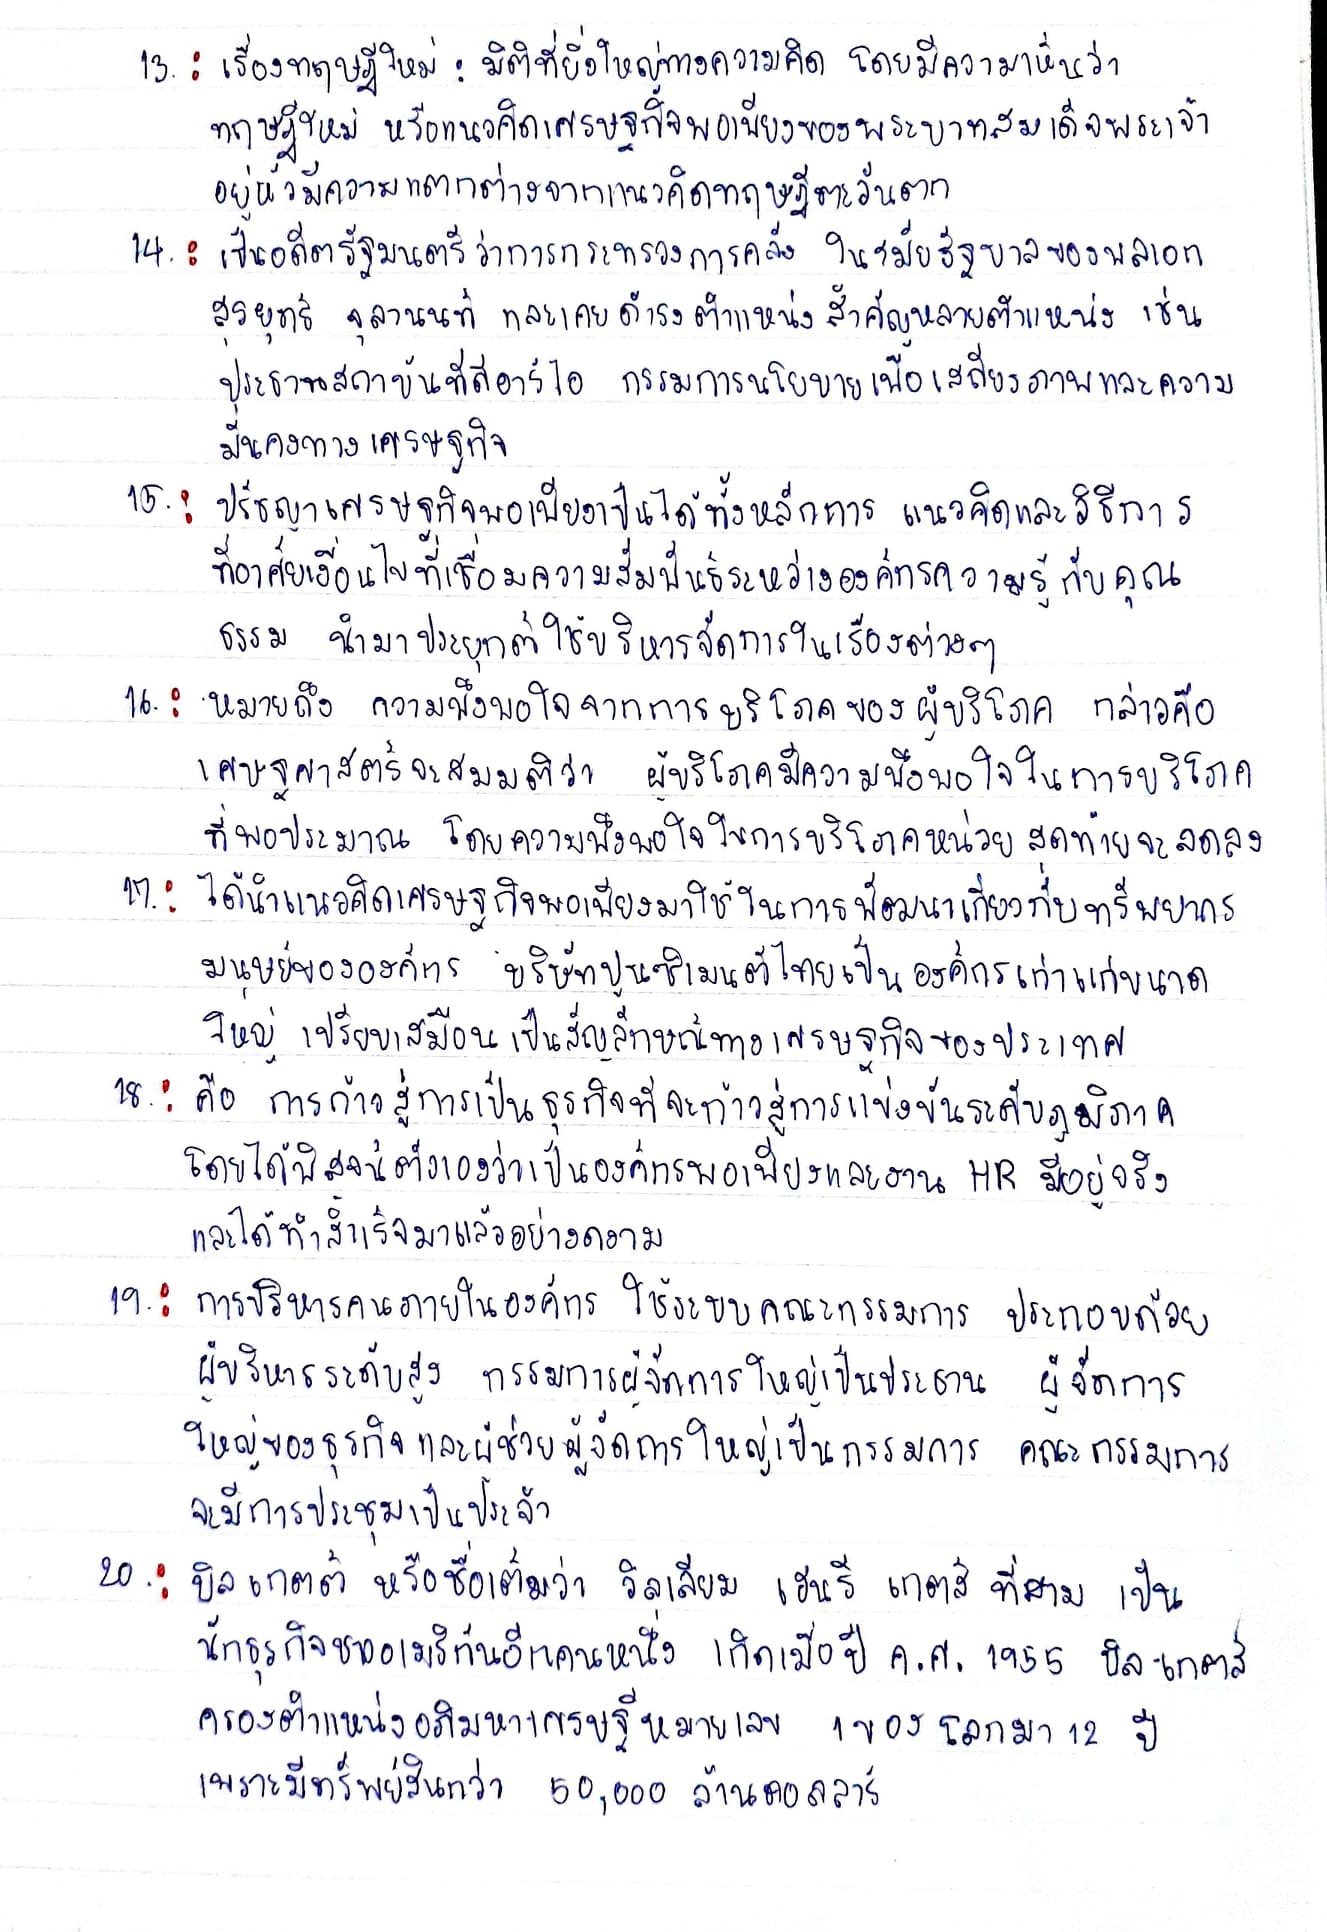 13. : เรื่องทฤษฎีใหม่ : มิติที่ยิ่งใหญ่ทางความคิด โดยมีความาเห็นว่า
ทฤษฎีใหม่ หรือแนวคิดเศรษฐกิจพอเพียงของพระบาทสมเด็จพระเจ้า
อยู่หัวมีความแตกต่างจากแนวคิดทฤษฎีตะวันตก
14. : เป็นอดีตรัฐมนตรีว่าการกระทรวงการคลัง ในสมัยรัฐบาลของพลเอก
สุรยุทธ์ จุลานนท์ และเคยดำรงตำแหน่งสำคัญหลายตำแหน่ง เช่น
ประธานสถาบันทีดีอาร์ไอ กรรมการนโยบายเพื่อเสถียรภาพและความ
มั่นคงทางเศรษฐกิจ
15. : ปรัชญาเศรษฐกิจพอเพียงเป็นได้ทั้งหลักการ แนวคิดและวิธีการ
ที่อาศัยเงื่อนไขที่เชื่อมความสัมพันธ์ระหว่างองค์กรความรู้กับคุณ
ธรรม นำมาประยุกต์ใช้บริหารจัดการในเรื่องต่างๆ
16. : หมายถึง ความพึงพอใจจากการบริโภคของผู้บริโภค กล่าวคือ
เศษฐศาสตร์จะสมมติว่า ผู้บริโภคมีความพึงพอใจในการบริโภค
ที่พอประมาณ โดยความพึงพอใจในการบริโภคหน่วยสุดท้ายจะลดลง
17. : ได้นำแนวคิดเศรษฐกิจพอเพียงมาใช้ในการพัฒนาเกี่ยวกับทรัพยากร
มนุษย์ขององค์กร บริษัทปูนซิเมนต์ไทยเป็นองค์กรเก่าแก่ขนาด
ใหญ่ เปรียบเสมือนเป็นสัญลักษณ์ทางเศรษฐกิจของประเทศ
18. : คือ การก้าวสู่การเป็นธุรกิจที่จะก้าวสู่การแข่งขันระดับภูมิภาค
โดยได้พิสูจน์ตัวเองว่าเป็นองค์กรพอเพียงและงาน HR มีอยู่จริง
และได้ทำสำเร็จมาแล้วอย่างดงาม
19. : การบริหารคนภายในองค์กร ใช้ระบบคณะกรรมการ ประกอบด้วย
ผู้บริหารระดับสูง กรรมการผู้จัดการใหญ่เป็นประธาน ผู้จัดการ
ใหญ่ของธุรกิจและผู้ช่วยผู้จัดการใหญ่เป็นกรรมการ คณะกรรมการ
จะมีการประชุมเป็นประจำ
20. : บิล เกตต์ หรือชื่อเต็มว่า วิลเลียม เฮนรี เกตส์ ที่สาม เป็น
นักธุรกิจชาวอเมริกันอีกคนหนึ่ง เกิดเมื่อปี ค.ศ. 1955 บิล เกตส์
ครองตำแหน่งอภิมหาเศรษฐีหมายเลข 1 ของโลกมา 12 ปี
เพราะมีทรัพย์สินกว่า 50,000 ล้านดอลลาร์